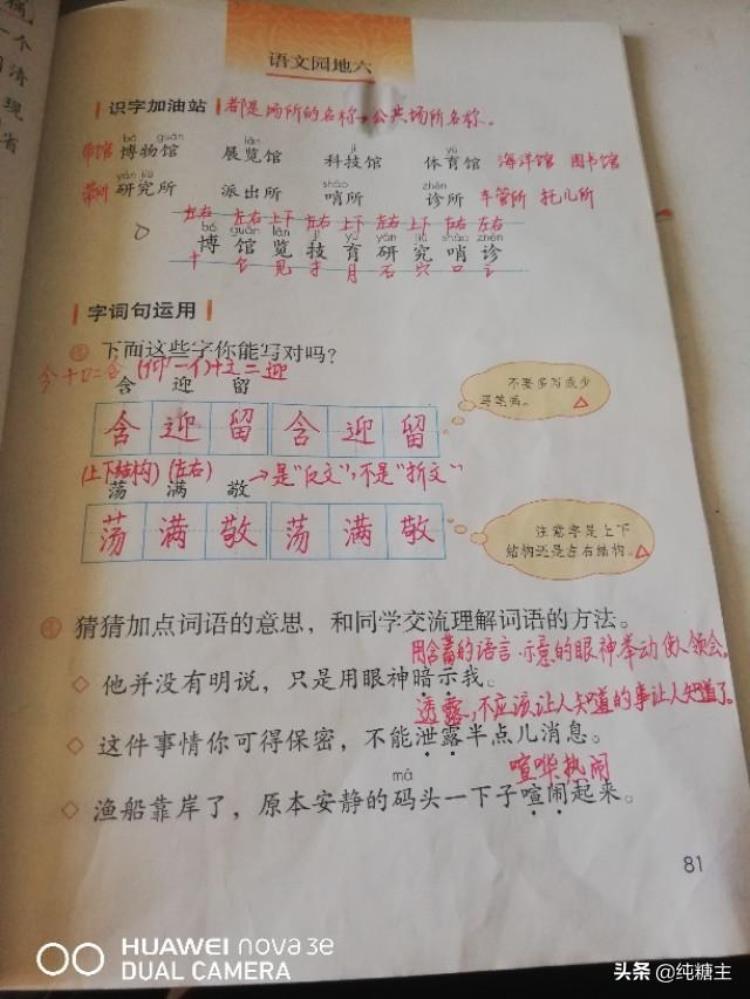 语文园地六
识字加油站 都是场所的名称→公共场所名称。
bó guǎn lǎn jì yù
博物馆 展览馆 科技馆 体育馆 海洋馆 图书馆
yán jiū shào zhěn
研究所 派出所 哨所 诊所 车管所 托儿所
左右 左右 上下 左右 上下 左右 上下 左右 左右
bó guǎn lǎn jì yù yán jiū shào zhěn
博 馆 览 技 育 研 究 哨 诊
十 饣 见 扌 月 石 穴 口 讠
字词句运用
下面这些字你能写对吗?
今+口=含 (仰-亻)+辶=迎
含 迎 留
不要多写或少
写笔画。
含 迎 留 含 迎 留
(上下结构) (左右) →是"反文",不是"折文"
荡 满 敬
荡 满 敬 荡 满 敬
注意字是上下
结构还是左右结构。
猜猜加点词语的意思,和同学交流理解词语的方法。
用含蓄的语言·示意的眼神举动使人领会。
◇ 他并没有明说,只是用眼神暗示我。
透露,不应该让人知道的事让人知道了。
◇ 这件事情你可得保密,不能泄露半点儿消息。
喧哗热闹
mǎ
◇ 渔船靠岸了,原本安静的码头一下子喧闹起来。
81
HUAWEI nova 3e
DUAL CAMERA
头条 @纯糖主